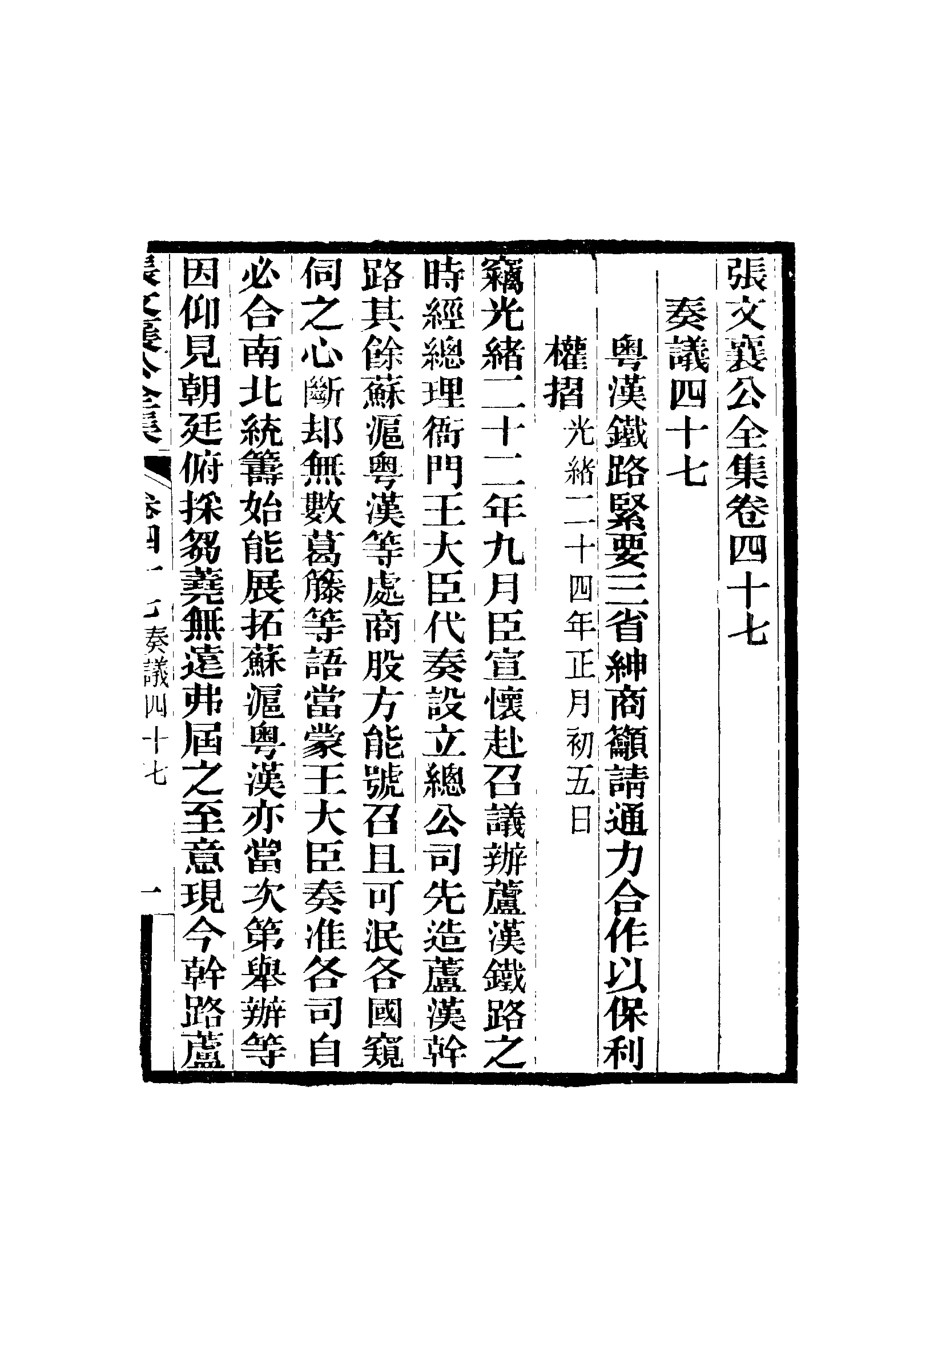 張文襄公全集卷四十七
奏議四十七
粵漢鐵路緊要三省紳商籲請通力合作以保利
權摺光緒二十四年正月初五日
竊光緒二十二年九月臣宣懷赴召議辦蘆漢鐵路之
時經總理衙門王大臣代奏設立總公司先造蘆漢幹
路其餘蘇滬粵漢等處商股方能號召且可泯各國窺
伺之心斷却無數葛籐等語當蒙王大臣奏准各司自
必合南北統籌始能展拓蘇滬粵漢亦當次第舉辦等
因仰見朝廷俯採芻蕘無遠弗屆之至意現今幹路蘆
張文襄公全集 卷四十七奏議四十七 一